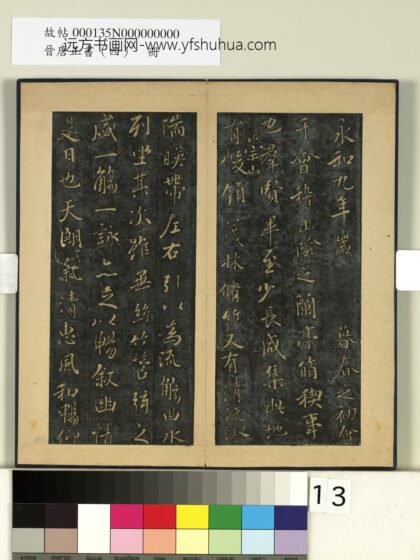 故帖 000135N000000000
晉唐正書（四） 冊
远方书画网-www.yfshuhua.com
永和九年歲 暮春之初會
于會稽山陰之蘭亭脩禊事
也羣賢畢至少長咸集此地
有峻領茂林脩竹又有清流激
崇山
湍暎帶左右引以為流觴曲水
列坐其次雖無絲竹管弦之
盛一觴一詠亦足以暢敘幽情
是日也天朗氣清惠風和暢仰
13